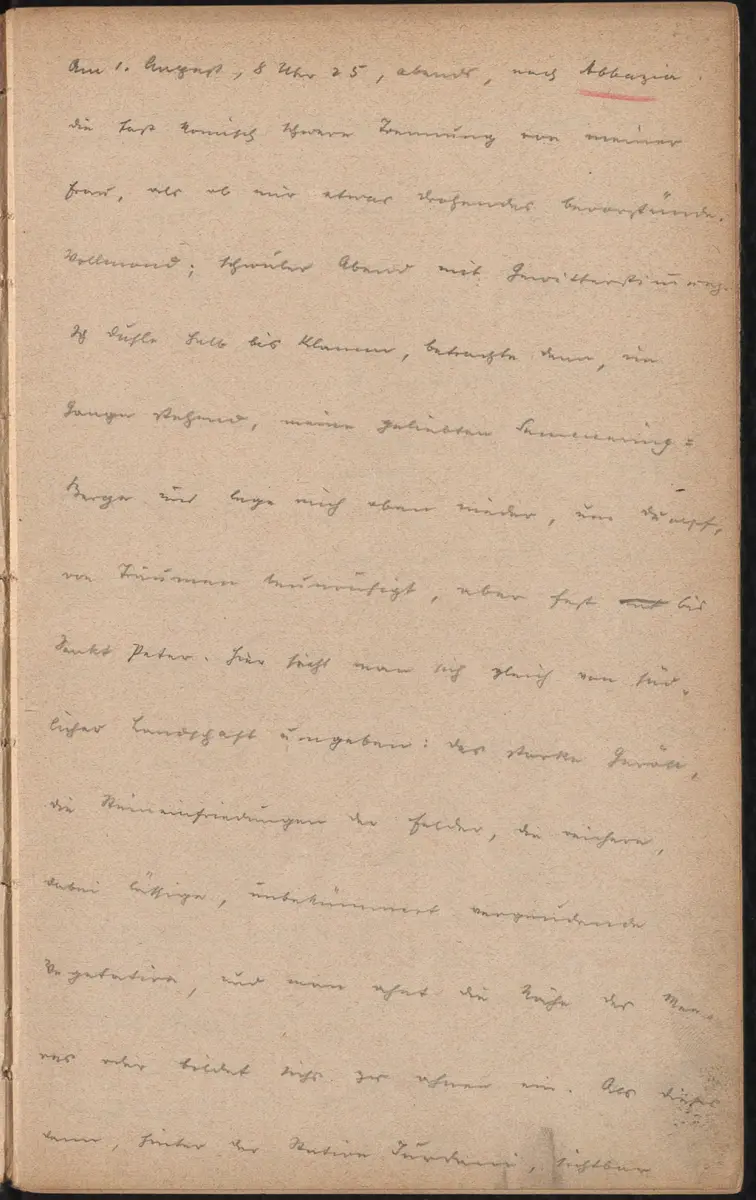 Am 1. August, 8 Uhr 25, abends, nach Abbazia.
Die fast komisch schwere Trennung von meiner
Frau, als ob mir etwas Drohendes bevorstünde.
Vollmond; schwüler Abend mit Gewitterstimmung.
Ich dusle halb bis Klamm, betrachte dann, im
Gange stehend, meine geliebten Semmering=
Berge und lege mich oben nieder, um dumpf,
von Träumen beunruhigt, aber fest bis
Sankt Peter. Hier sieht man sich gleich von süd-
licher Landschaft umgeben: das starke Geröll,
die Steineinfriedungen der Felder, die reichere,
dabei lässige, unbekümmert vergeudende
Vegetation, und man ahnt die Nähe des Mee-
res oder bildet sichs zu ahnen ein. Als dieses
dann, hinter der Station Jurdani, sichtbar